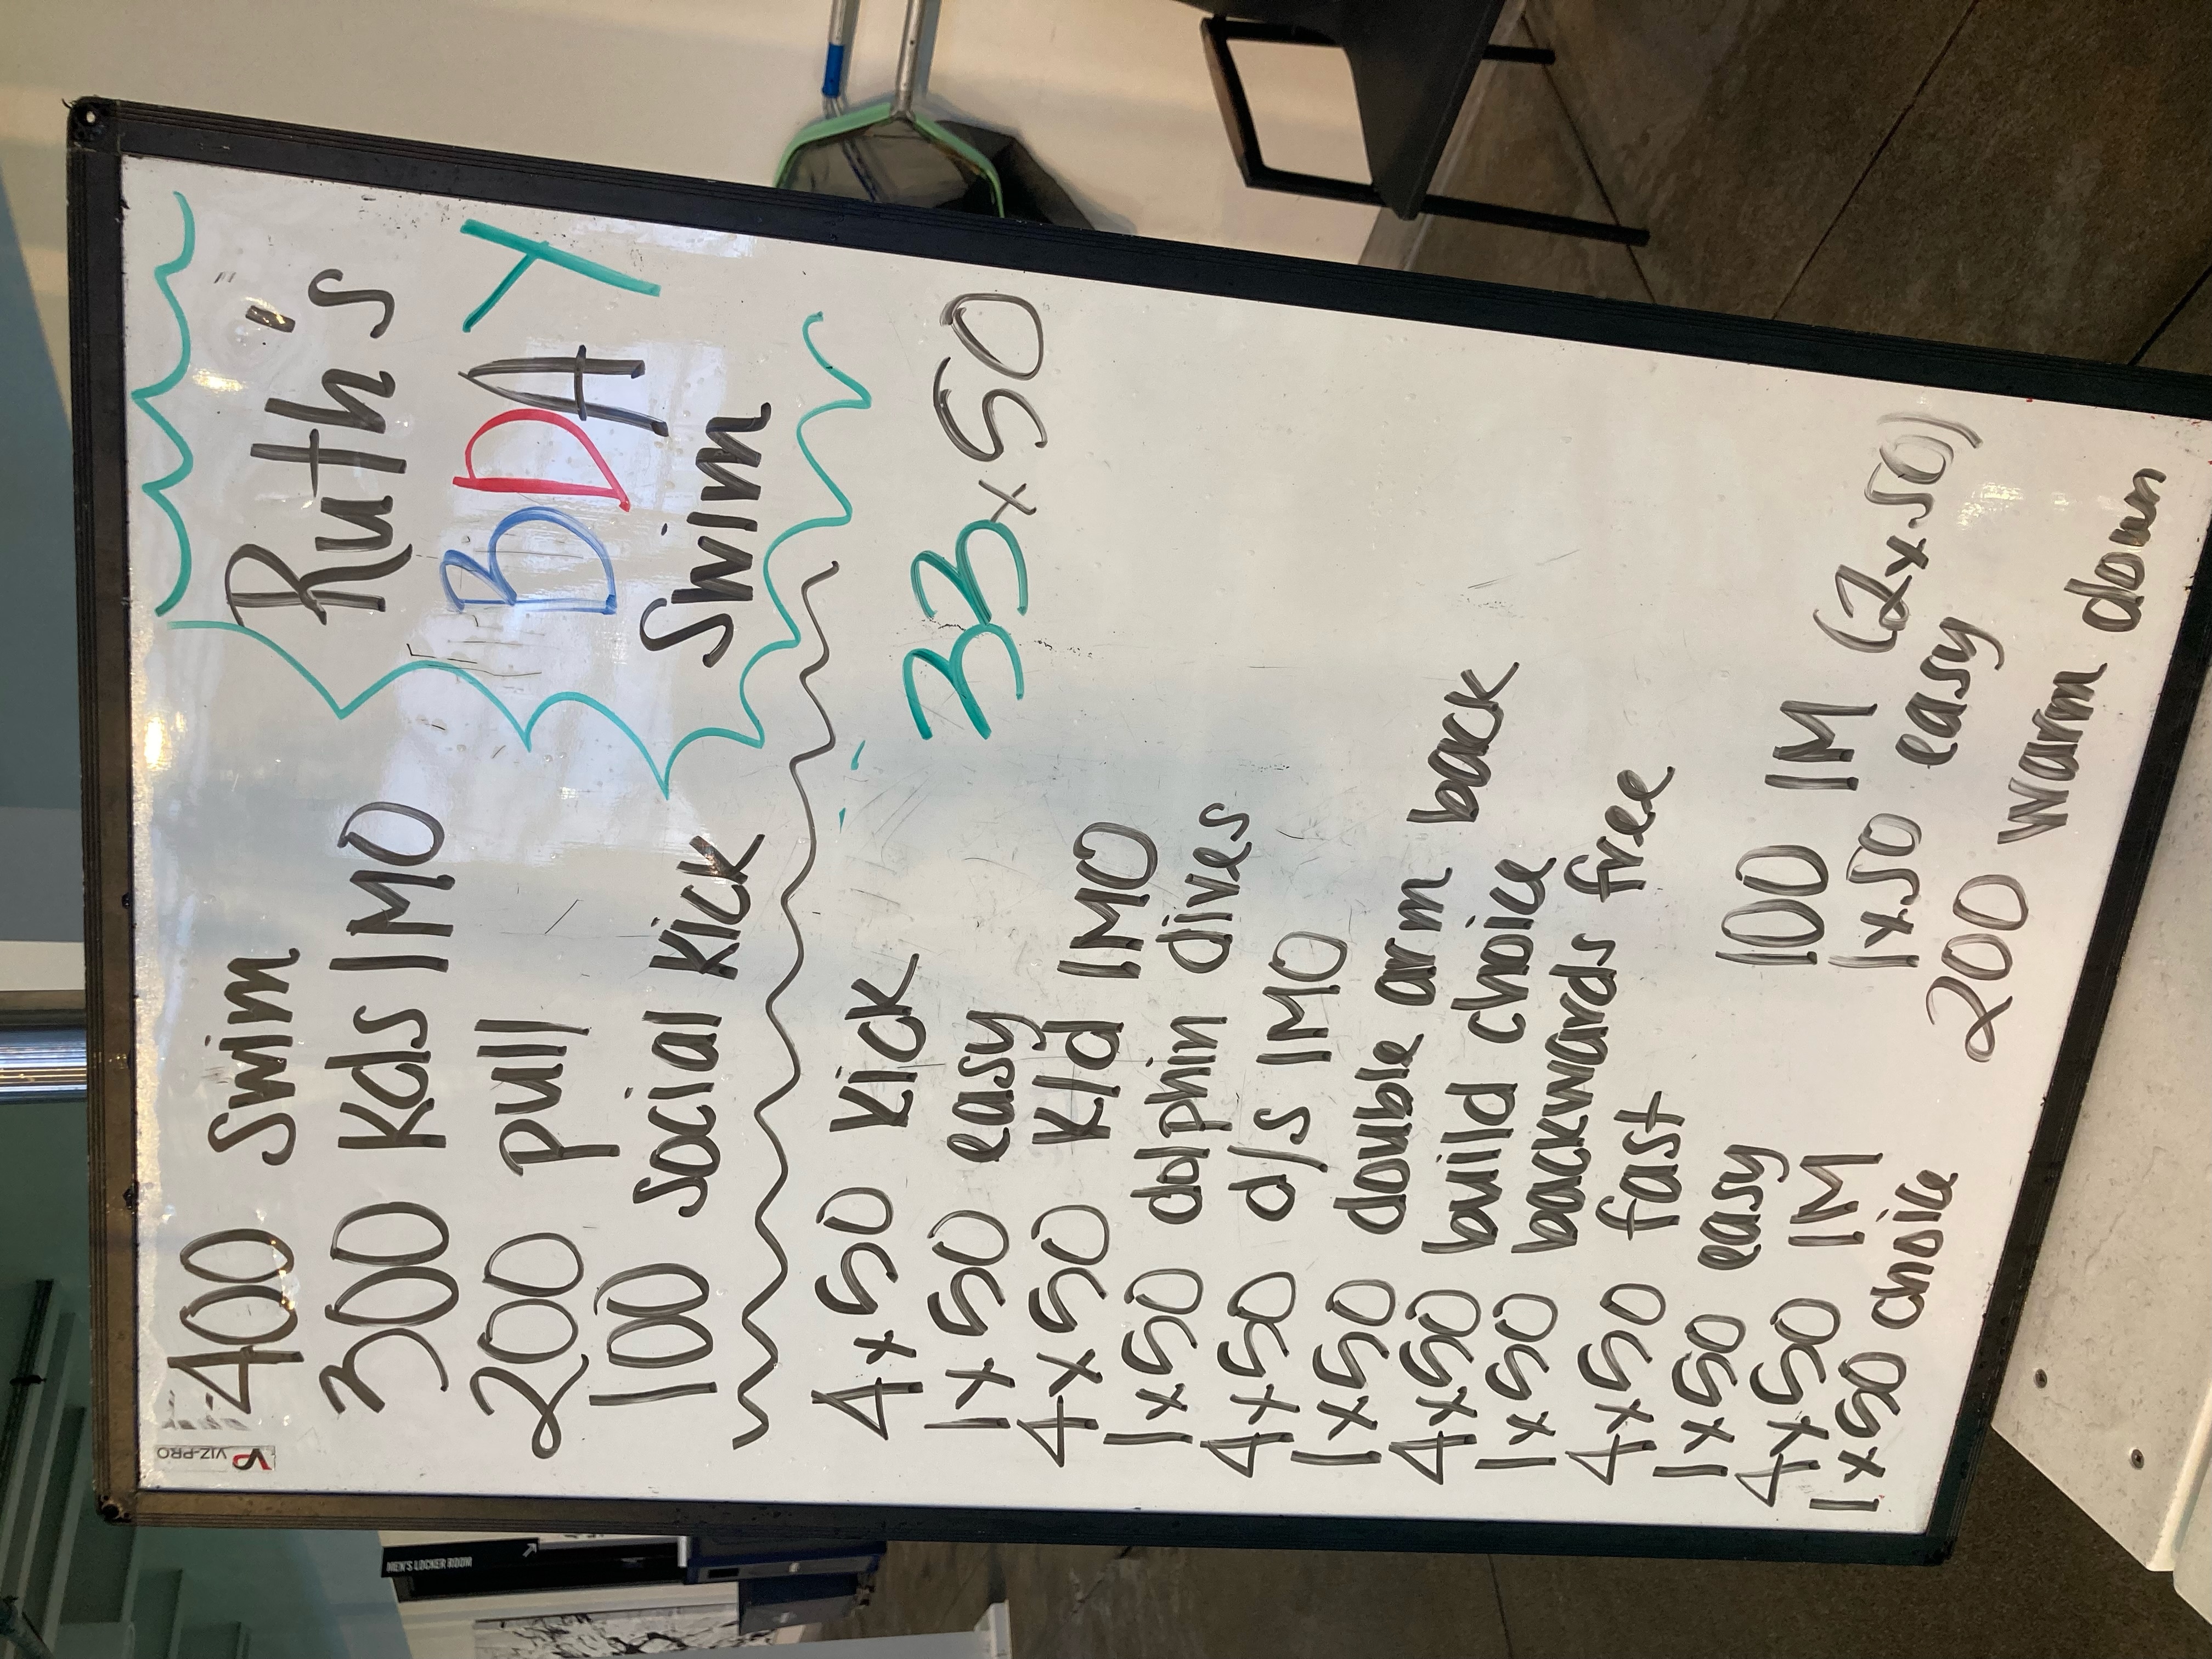 VIZ-PRO
Ruth's
BDAY
Swim
400 Swim
300 Kds IMO
200 pull
100 social kick
33 x 50
4 x 50 Kick
1 x 50 easy
4 x 50 K/d IMO
1 x 50 dolphin dives
4 x 50 d/s IMO
1 x 50 double arm back
4 x 50 build choice
1 x 50 backwards free
4 x 50 fast
1 x 50 easy
4 x 50 IM
1 x 50 choice
100 IM (2 x 50)
1 x 50 easy
200 warm down
MEN'S LOCKER ROOM